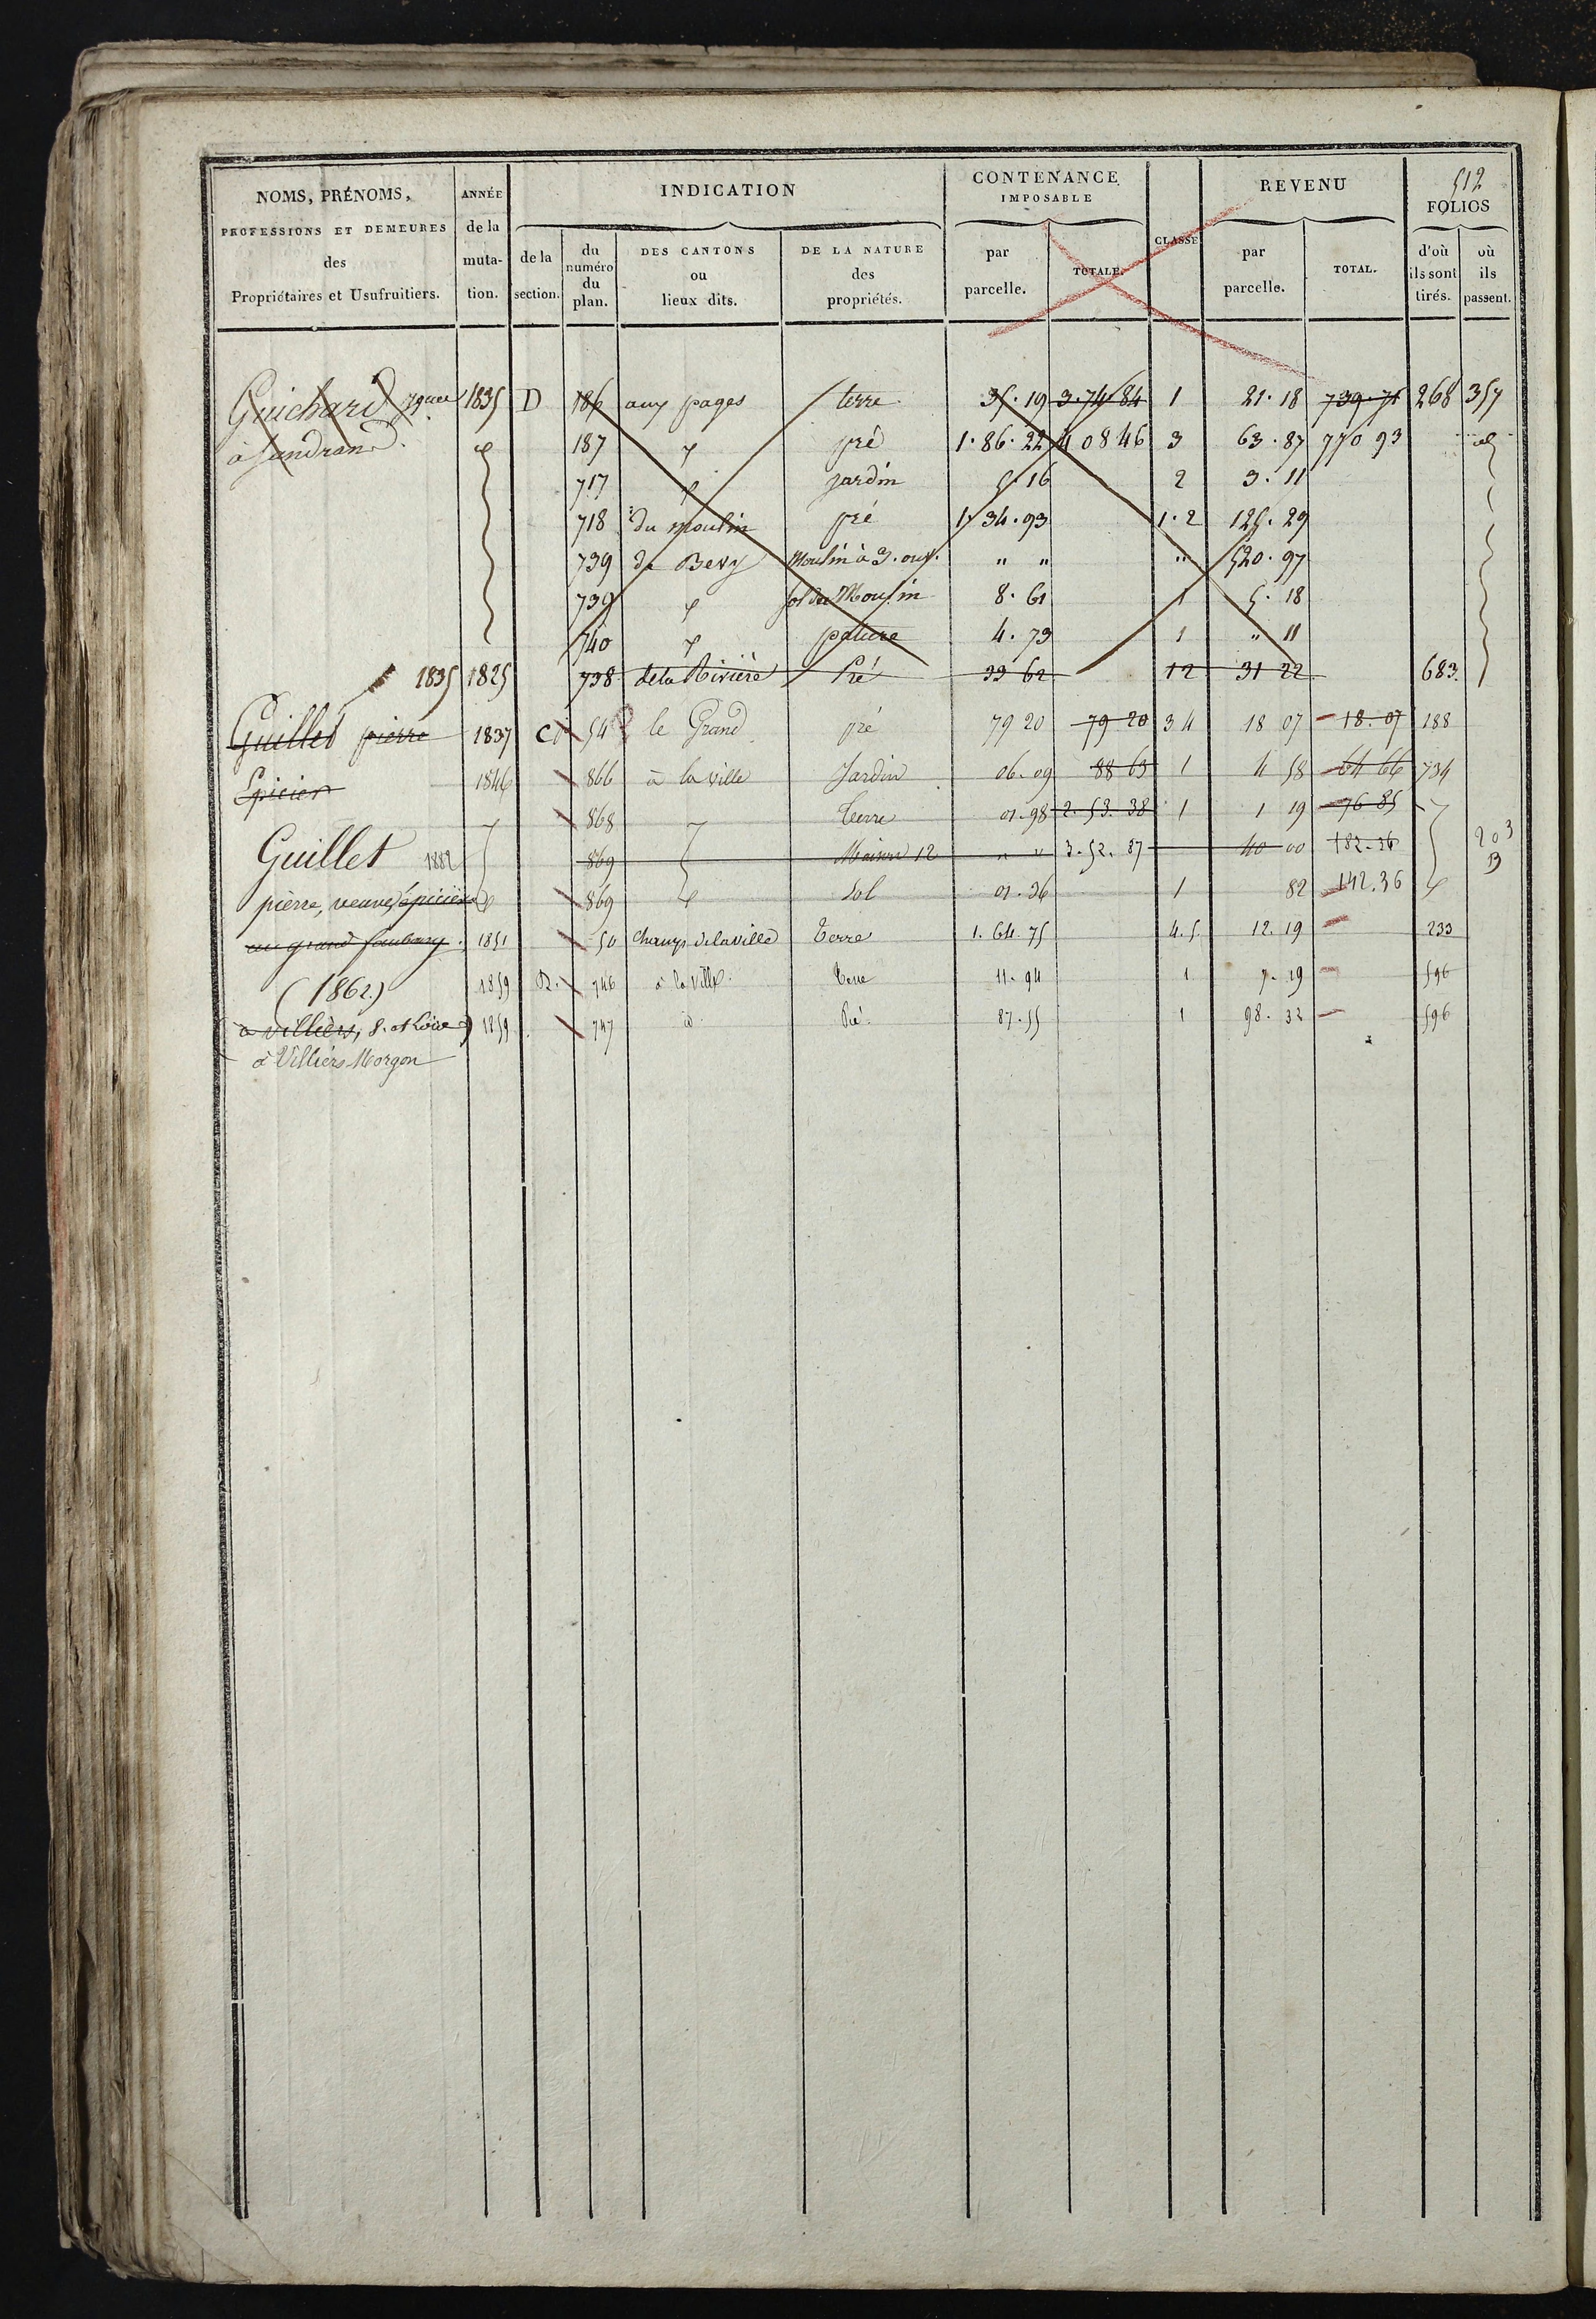 512
NOMS, PRÉNOMS, PROFESSIONS ET DEMEURES des Propriétaires et Usufruitiers.
ANNÉE de la muta- tion.
INDICATION
de la section.
du numéro du plan.
DES CANTONS ou lieux dits.
DE LA NATURE des propriétés.
CONTENANCE IMPOSABLE
par parcelle.
TOTALE.
CLASSE
REVENU
par parcelle.
TOTAL.
FOLIOS
d'où ils sont tirés.
où ils passent.
Guichard 1835 D 186 aux pages terre 35.19 3.74.84 1 21.18 739.71 268 357
à Sandrans 187 pré 1.86.22 4 08 46 3 63.87 770 93
717 jardin 5.16 2 3.11
718 du moulin pré 1.34.93 1.2 125.29
739 de Bevy Moulin à 3. ouv. " " " 520.97
739 sol du Moulin 8.61 1 5.18
740 pature 4.73 1 " 11
1835 1825 738 de la Rivière Pré 33 62 12 31 22 683.
Guillet pierre 1837 C 54 le Grand pré 79 20 79 20 3 4 18 07 18.07 188
Epicier 1846 866 à la ville Jardin 06.09 88 63 1 4 58 64 66 734
868 Terre 01.98 2.53.38 1 1 19 76 85
Guillet 1882 869 Maison 12 " " 3.52.87 40 00 182.36 203 B
pierre, veuve, épicière 869 Sol 01.36 1 82 142.36
au grand faubourg. 1851 50 Champs de la ville Terre 1.64.75 4.5. 12.19 233
(1862) 1859 746 à la ville Terre 11.94 1 7.19 596
à Villiers, S. et Loire) 1859 747 id Pré 87.55 1 98.32 596
à Villiers Morgon